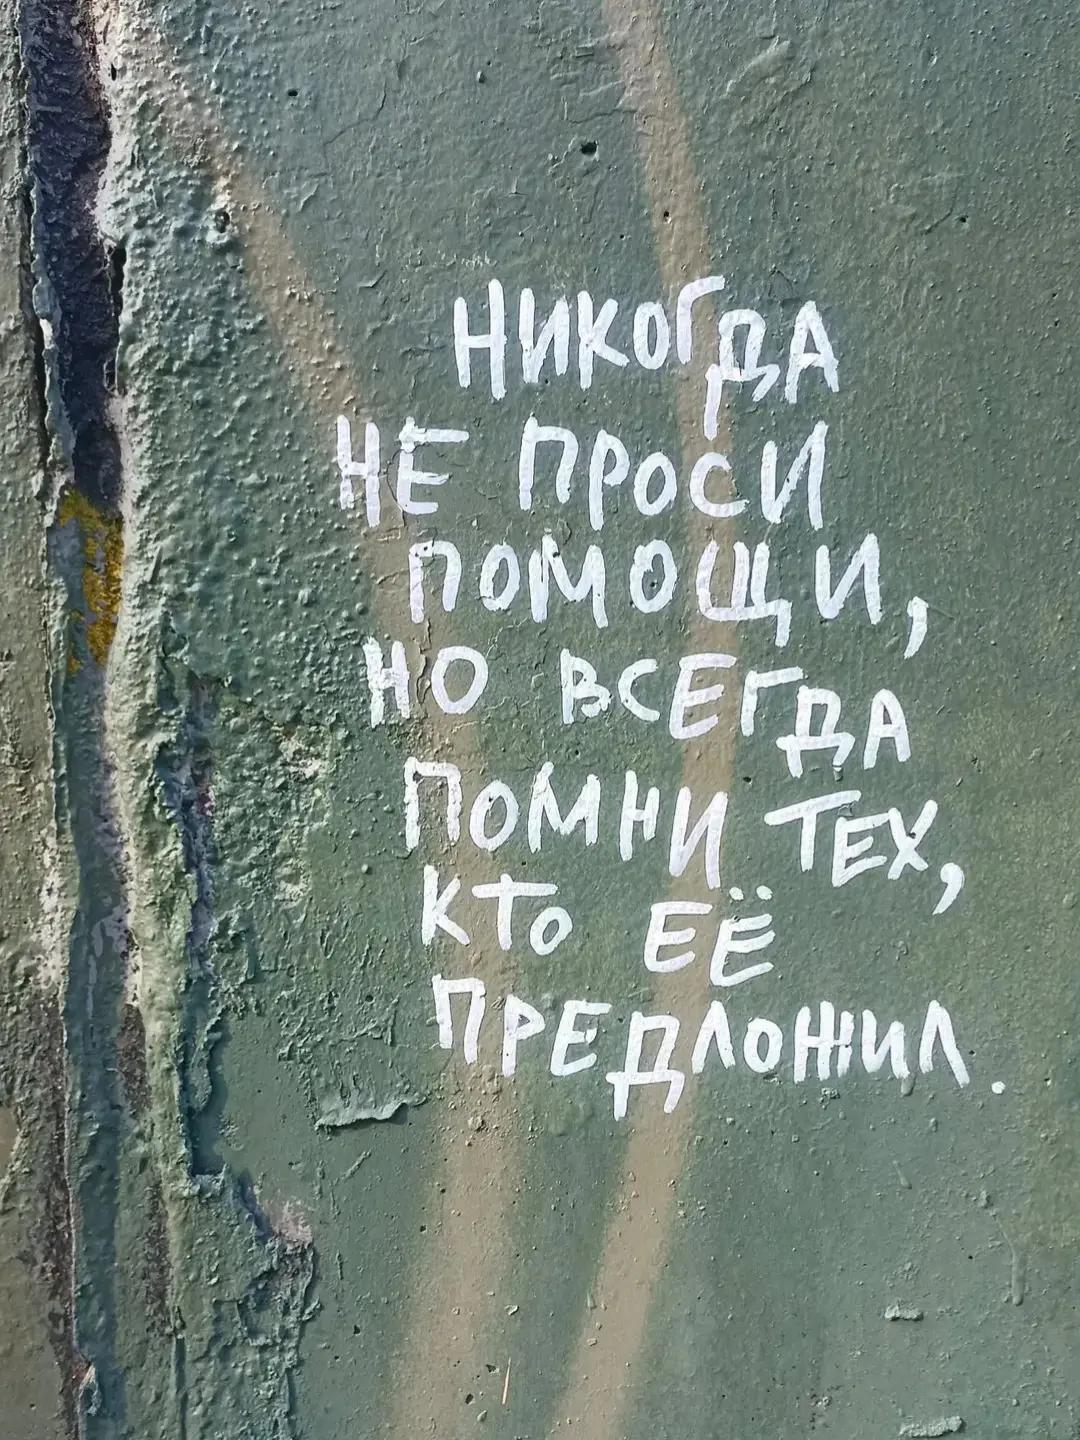 НИКОГДА
НЕ ПРОСИ
ПОМОЩИ,
НО ВСЕГДА
ПОМНИ ТЕХ,
КТО ЕЁ
ПРЕДЛОЖИЛ.